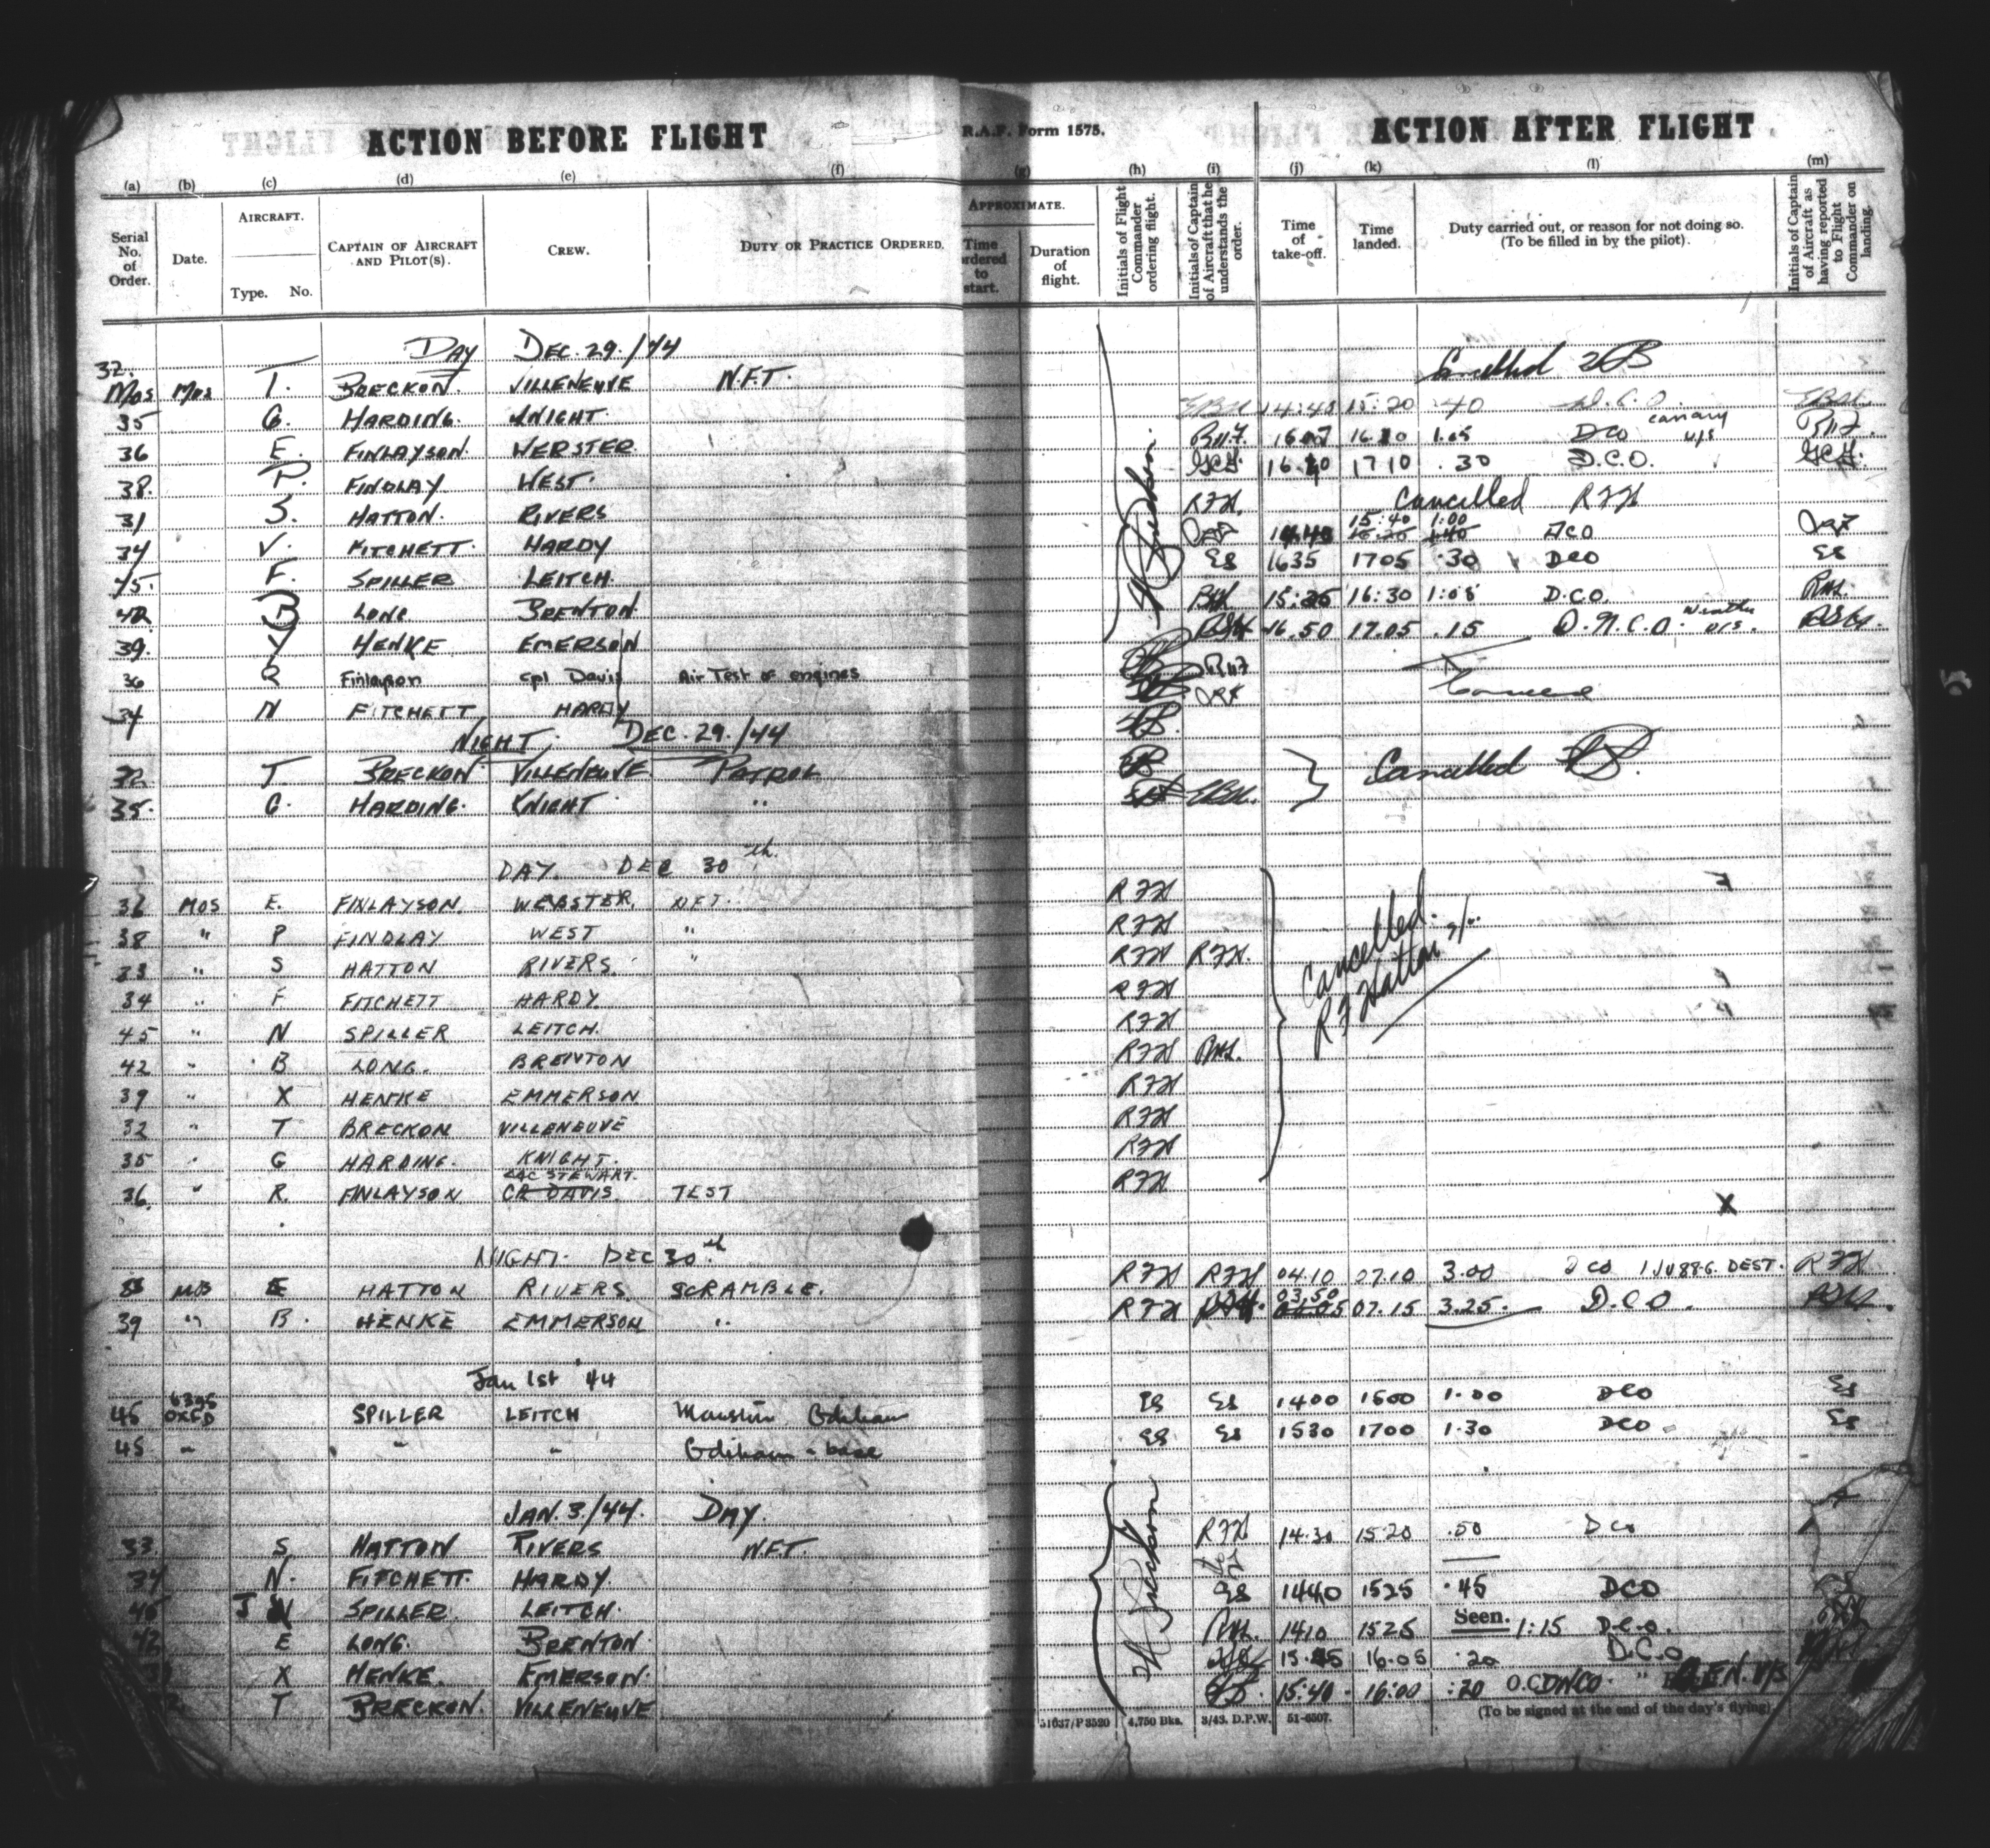 ACTION BEFORE FLIGHT R.A.F. Form 1575. ACTION AFTER FLIGHT
(a) (b) (c) (d) (e) (f) (g) (h) (i) (j) (k) (l) (m)
Serial No. of Order.
Date.
AIRCRAFT.
Type. No.
CAPTAIN OF AIRCRAFT AND PILOT(S).
CREW.
DUTY OR PRACTICE ORDERED.
APPROXIMATE.
Time ordered to start.
Duration of flight.
Initials of Flight Commander ordering flight.
Initials of Captain of Aircraft that he understands the order.
Time of take-off.
Time landed.
Duty carried out, or reason for not doing so.
(To be filled in by the pilot).
Initials of Captain of Aircraft as having reported to Flight Commander on landing.
DAY DEC. 29./44
32. Mos Mos T. BRECKON VILLENEUVE N.F.T. Cancelled
35 G. HARDING. KNIGHT. 14:40 15:20 .40 D.C.O.
36 E. FINLAYSON. WEBSTER. 1607 1.05 DCO canary u/s
38. P. FINDLAY WEST. 1710 .30 D.C.O.
31 S. HATTON. RIVERS RFH. Cancelled RFH
34 V. FITCHETT. HARDY 15:40 1:00 DCO
45. F. SPILLER LEITCH. ES 1635 1705 .30 DCO ES
42 B LONG. BRENTON 16:30 1:05 D.C.O.
39. Y HENKE EMERSON 16.50 17.05 .15 D.N.C.O. Weather u/s.
36 R Finlayson Cpl Davis Air Test of engines
34 N FITCHETT HARDY
NIGHT, DEC. 29./44
32. T. BRECKON VILLENEUVE PATROL Cancelled
35. G. HARDING. KNIGHT. "
DAY. DEC 30th.
36 MOS E. FINLAYSON. WEBSTER. NFT. RFH
38 " P FINDLAY WEST " RFH
33 " S HATTON RIVERS. " RFH RFH. Cancelled. R F Hatton
34 " F FITCHETT HARDY. RFH
45 " N SPILLER LEITCH. RFH
42 " B LONG. BRENTON RFH
39 " X HENKE EMMERSON RFH
32 " T BRECKON VILLENEUVE RFH
35 " G HARDING. KNIGHT. RFH
LAC STEWART.
36. " R. FINLAYSON CPL DAVIS TEST RFH
X
NIGHT. DEC 30th
MOS E HATTON RIVERS. SCRAMBLE. RFH RFH 04.10 07.10 3.00 DCO 1 JU 88 G. DEST. RFH
39 " B. HENKE EMMERSON " RFH 03.50 07.15 3.25. D.C.O.
Jan 1st 44
45 OXFD SPILLER LEITCH Manston Odiham ES ES 1400 1500 1.00 DCO ES
45 " " " Odiham - base ES ES 1530 1700 1.30 DCO ES
JAN. 3./44. DAY.
33. S. HATTON RIVERS N.F.T. RFH 14.30 15.20 .50 DCO
34 N. FITCHETT. HARDY.
45 J SPILLER. LEITCH. ES 1440 1525 .45 DCO
42 E LONG. BRENTON. 1410 1525 Seen. 1:15 D.C.O.
X HENKE. EMERSON. 16.05 .20 D.C.O
T BRECKON. VILLENEUVE 15:40 16:00 :20
51637/P3520 4,750 Bks. 3/43. D.P.W. 51-6507.
(To be signed at the end of the day's flying)